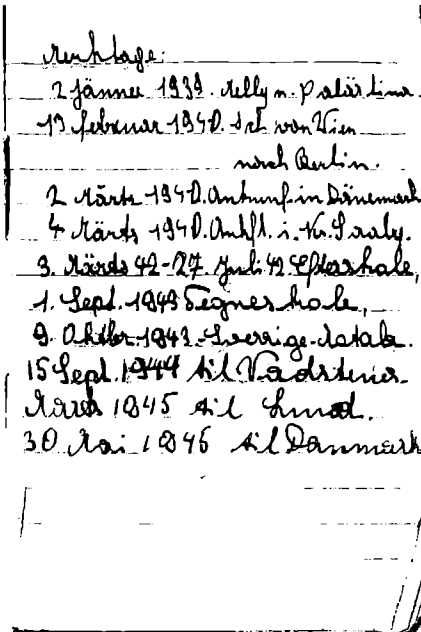 Merktage:
2 Jänner 1939. Nelly n. Palästina.
13 februar 1940. Ich von Wien
nach Berlin.
2 Märtz 1940. Ankunf. in Dänemark
4 Märts 1940. Ankft. i. Kr. Saaby.
3. Märts 42-27. Juli 42 Efterskole,
1. Sept. 1943 Tegnerskole,
9. Oktbr. 1943. Sverrige.
15 Sept. 1944 til Vadstena.
Marts 1945 til
30 Mai 1945 til Danmark